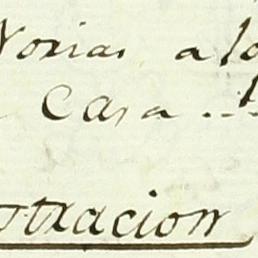 Norias a la
Casa ..
stracion